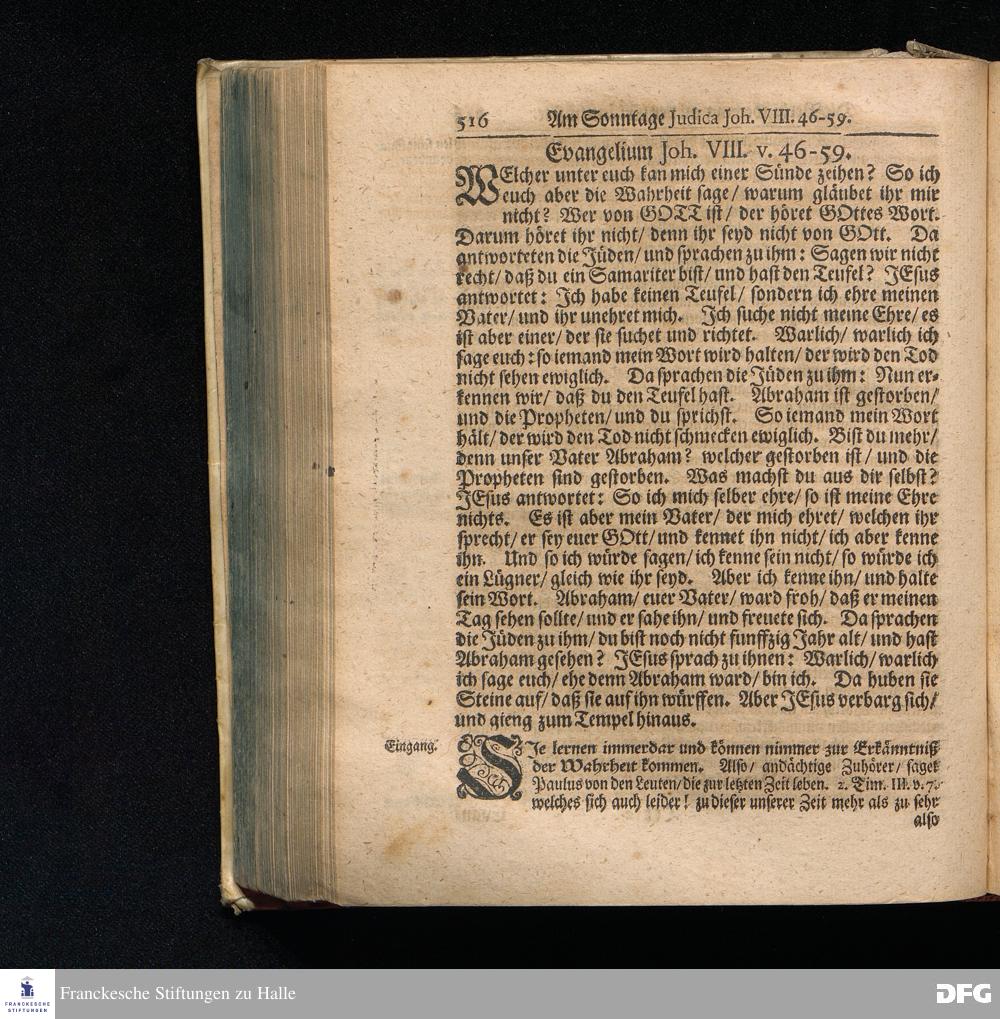 516 Am Sonntage Judica Joh. VIII. 46-59.
Evangelium Joh. VIII. v. 46-59.
WElcher unter euch kan mich einer Sünde zeihen? So ich
euch aber die Wahrheit sage/ warum gläubet ihr mir
nicht? Wer von GOTT ist/ der höret GOttes Wort.
Darum höret ihr nicht/ denn ihr seyd nicht von GOtt. Da
antworteten die Jüden/ und sprachen zu ihm: Sagen wir nicht
recht/ daß du ein Samariter bist/ und hast den Teufel? JEsus
antwortet: Ich habe keinen Teufel/ sondern ich ehre meinen
Vater/ und ihr unehret mich. Ich suche nicht meine Ehre/ es
ist aber einer/ der sie suchet und richtet. Warlich/ warlich ich
sage euch: so iemand mein Wort wird halten/ der wird den Tod
nicht sehen ewiglich. Da sprachen die Jüden zu ihm: Nun er-
kennen wir/ daß du den Teufel hast. Abraham ist gestorben/
und die Propheten/ und du sprichst. So iemand mein Wort
hält/ der wird den Tod nicht schmecken ewiglich. Bist du mehr/
denn unser Vater Abraham? welcher gestorben ist/ und die
Propheten sind gestorben. Was machst du aus dir selbst?
JEsus antwortet: So ich mich selber ehre/ so ist meine Ehre
nichts. Es ist aber mein Vater/ der mich ehret/ welchen ihr
sprecht/ er sey euer GOtt/ und kennet ihn nicht/ ich aber kenne
ihn. Und so ich würde sagen/ ich kenne sein nicht/ so würde ich
ein Lügner/ gleich wie ihr seyd. Aber ich kenne ihn/ und halte
sein Wort. Abraham/ euer Vater/ ward froh/ daß er meinen
Tag sehen sollte/ und er sahe ihn/ und freuete sich. Da sprachen
die Jüden zu ihm/ du bist noch nicht funffzig Jahr alt/ und hast
Abraham gesehen? JEsus sprach zu ihnen: Warlich/ warlich
ich sage euch/ ehe denn Abraham ward/ bin ich. Da huben sie
Steine auf/ daß sie auf ihn würffen. Aber JEsus verbarg sich/
und gieng zum Tempel hinaus.
Eingang.
SIe lernen immerdar und können nimmer zur Erkänntniß
der Wahrheit kommen. Also/ andächtige Zuhörer/ saget
Paulus von den Leuten/ die zur letzten Zeit leben. 2. Tim. III. v. 7.
welches sich auch leider! zu dieser unserer Zeit mehr als zu sehr
also
FRANCKESCHE
STIFTUNGEN
Franckesche Stiftungen zu Halle
DFG